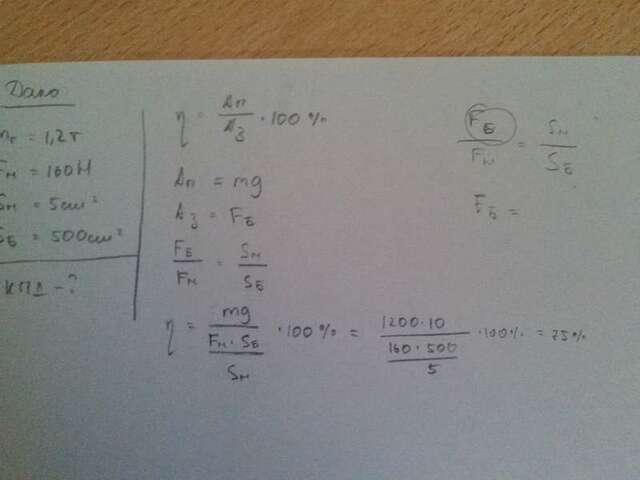 Дано
mг = 1,2т
Fм = 160Н
Sм = 5см²
Sб = 500см²
КПД - ?
η = Aп/Aз · 100%
Aп = mg
Aз = Fб
Fб/Fм = Sм/Sб
η = mg/(Fм · Sб/Sм) · 100% = 1200·10/(160·500/5) · 100% = 75%
Fб/Fм = Sм/Sб
Fб =